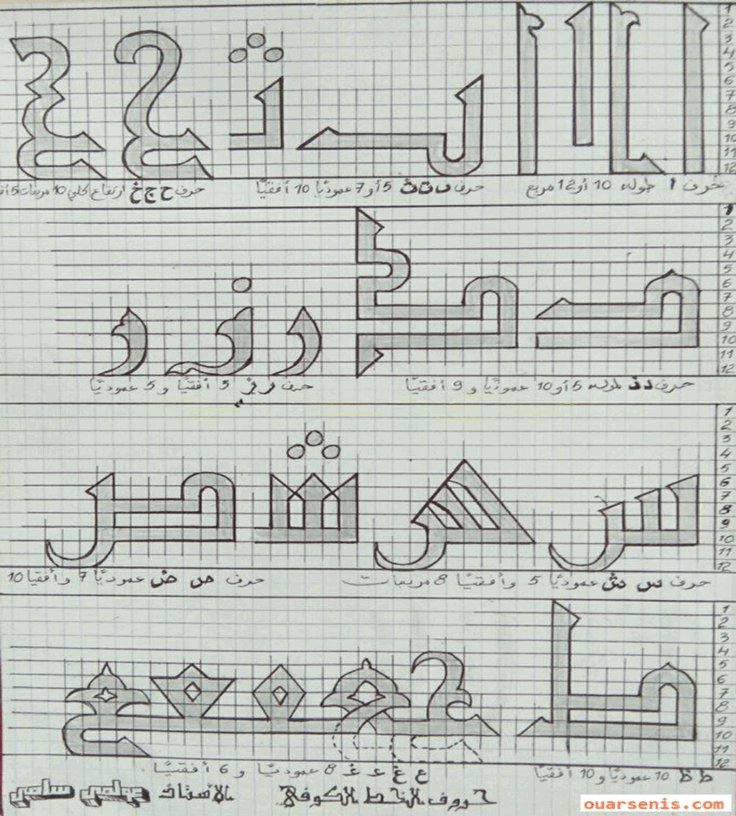 حرف ا طوله 10 أو 12 مربع
حرف ب ت ث 5 أو 7 عموديًا 10 أفقيًا
حرف ح ج خ ارتفاع الكلي 10 مربعات
حرف د ذ طوله 5 أو 10 عموديًا و 9 أفقيًا
حرف ر ز 5 أفقيًا و 5 عموديًا
حرف س ش عموديًا 5 وأفقيًا 8 مربعات
حرف ص ض عموديًا 7 وأفقيا 10
ط ظ 10 عموديًا و 10 أفقيًا
ع غ ء غ 8 عموديًا و 6 أفقيًا
حروف الخط الكوفي الأستاذ
1
2
3
4
5
6
7
8
9
10
11
12
1
2
3
4
5
6
7
8
9
10
11
12
1
2
3
4
5
6
7
8
9
10
11
12
1
2
3
4
5
6
7
8
9
10
11
12
ouarsenis.com